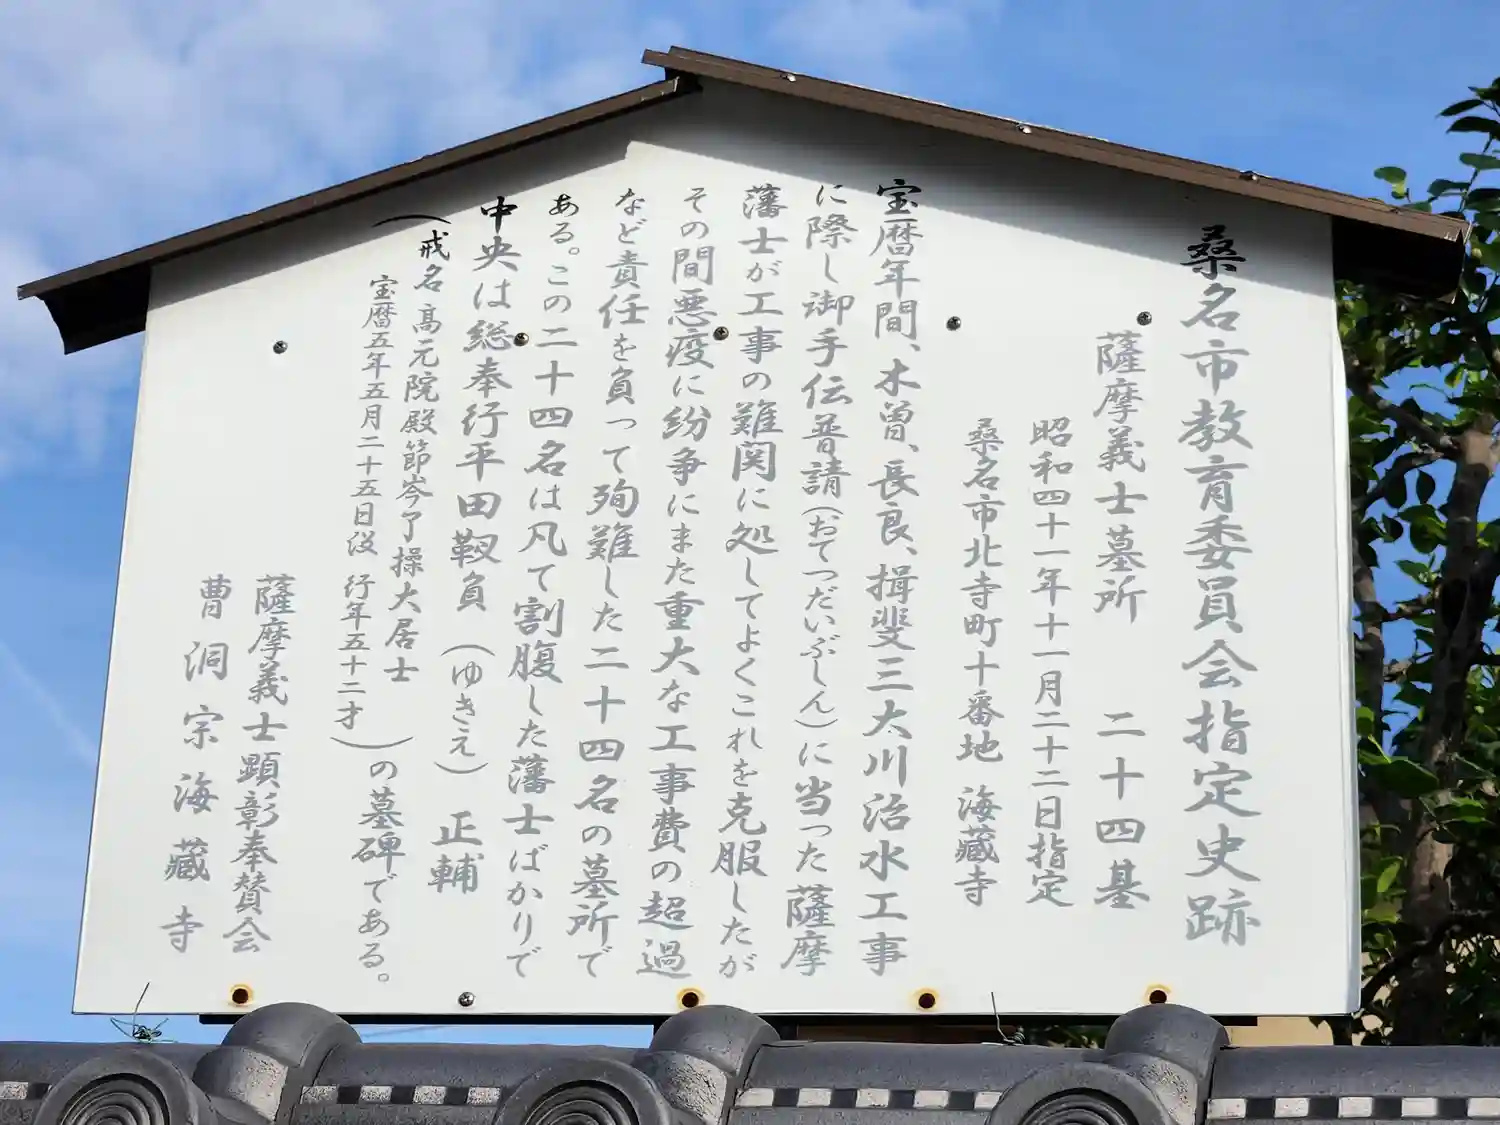 桑名市教育委員会指定史跡
薩摩義士墓所 二十四基
昭和四十一年十一月二十二日指定
桑名市北寺町十番地 海蔵寺
宝暦年間、木曽、長良、揖斐三大川治水工事
に際し御手伝普請(おてつだいぶしん)に当った薩摩
藩士が工事の難関に処してよくこれを克服したが
その間悪疫に紛争にまた重大な工事費の超過
など責任を負って殉難した二十四名の墓所で
ある。この二十四名は凡て割腹した藩士ばかりで
中央は総奉行平田靱負(ゆきえ)正輔
(戒名 高元院殿節岑了操大居士
宝暦五年五月二十五日没 行年五十二才)の墓碑である。
薩摩義士顕彰奉賛会
曹洞宗海蔵寺